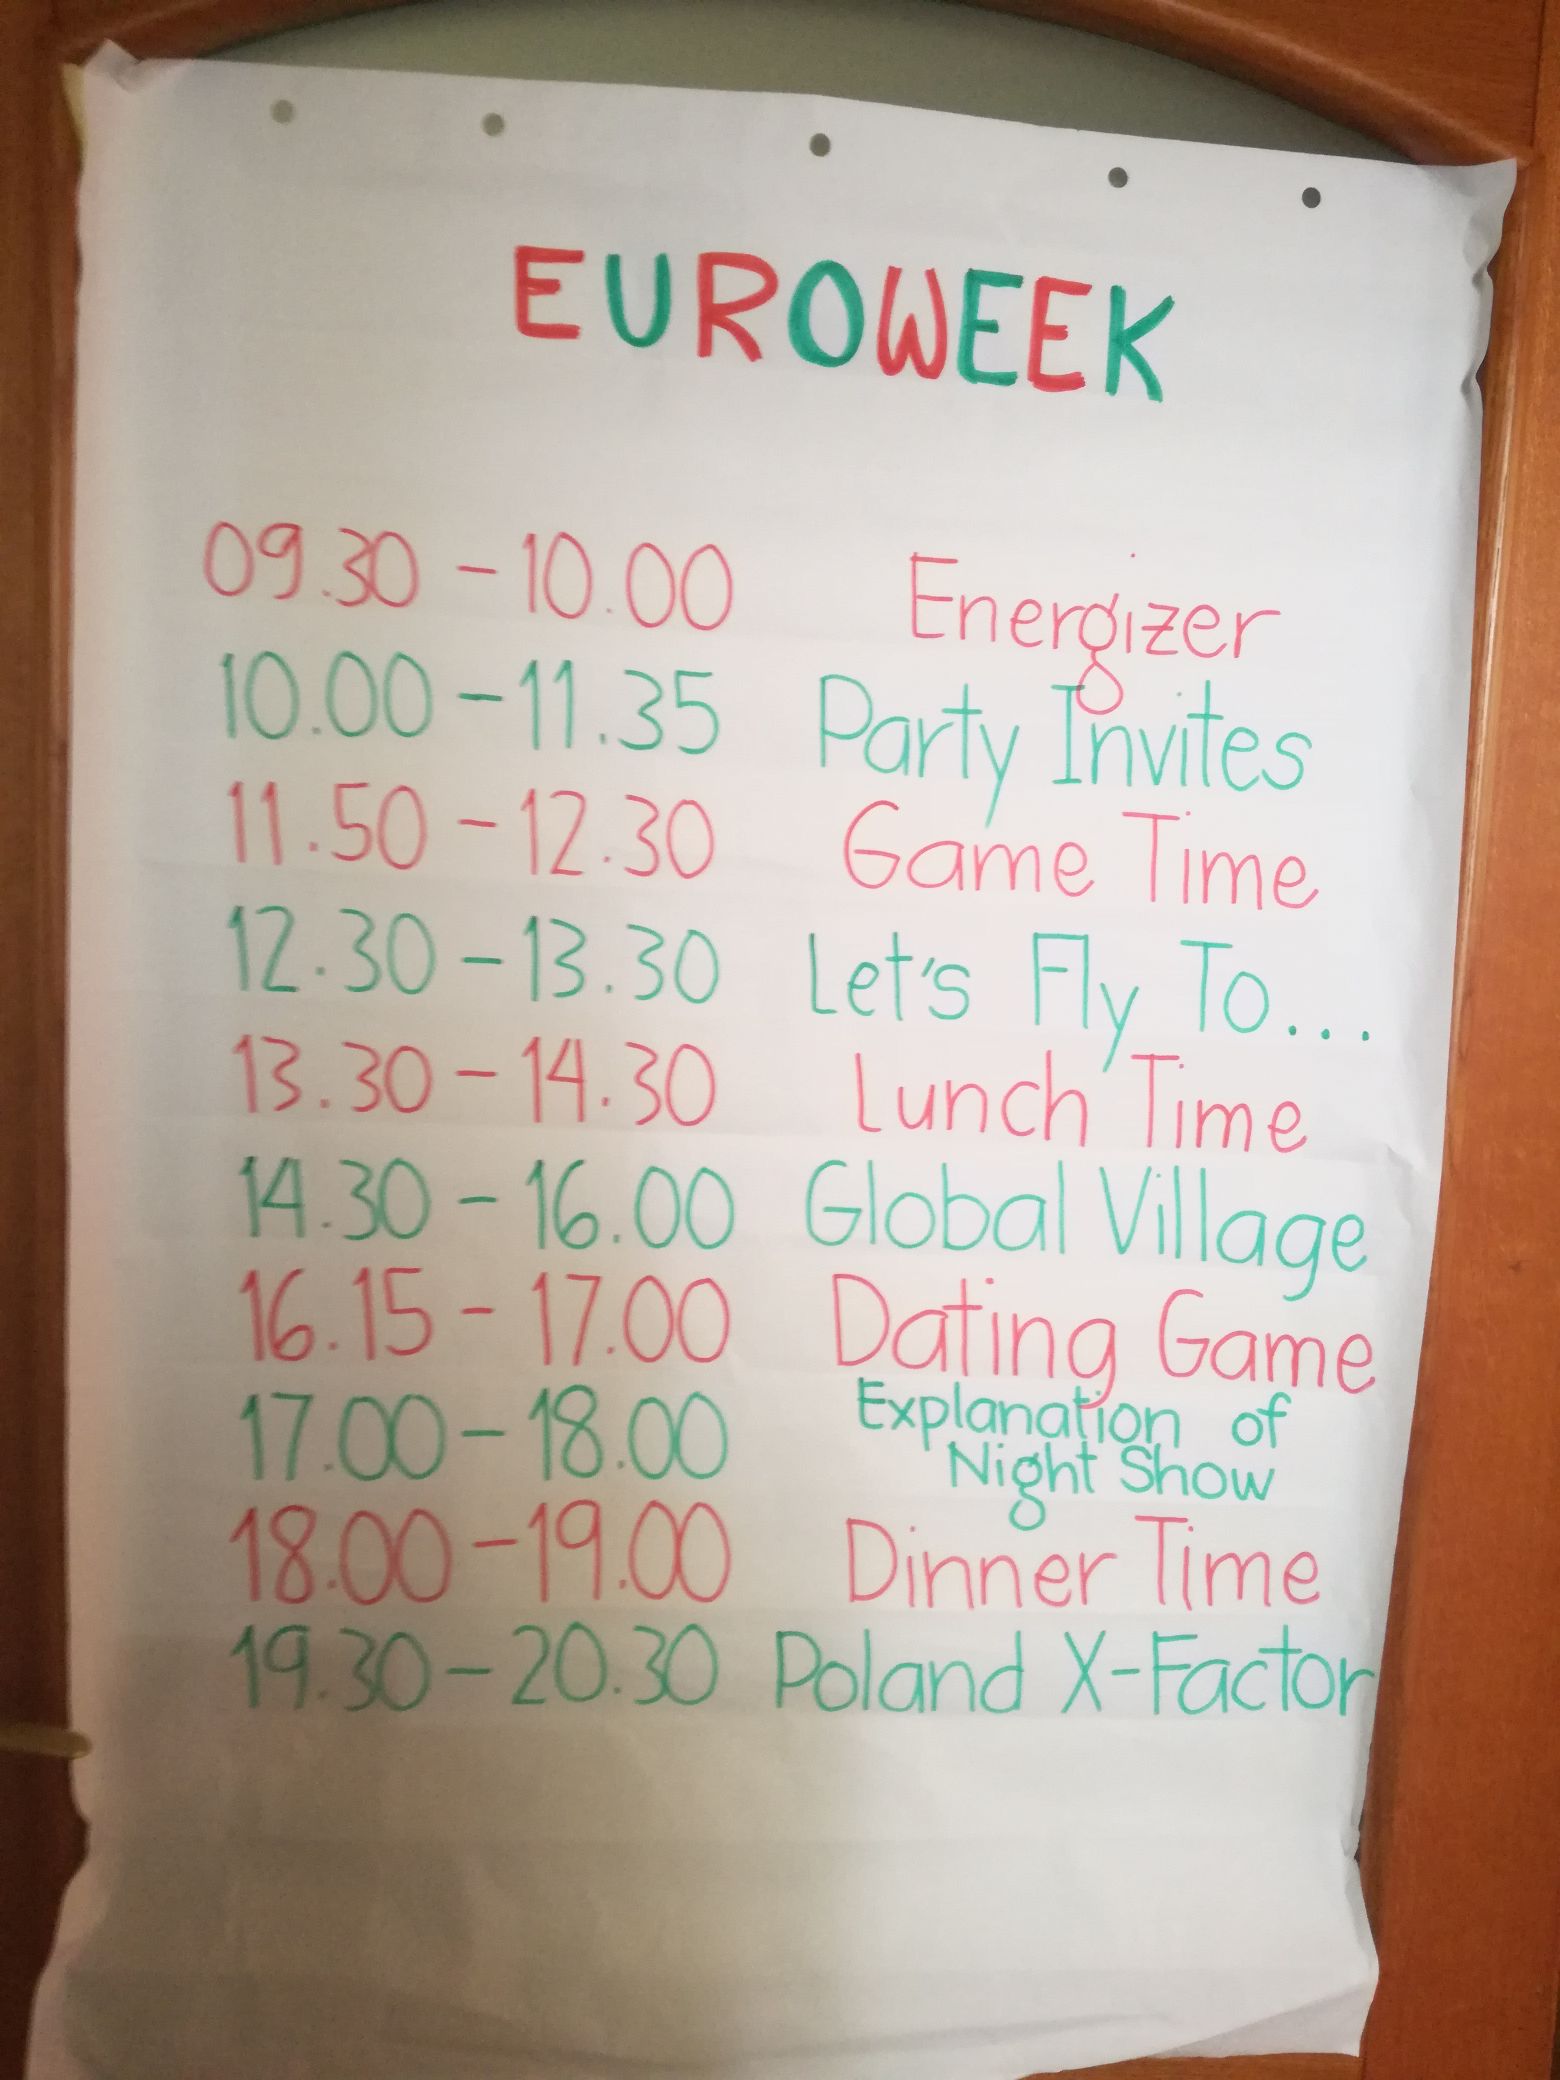 EUROWEEK
09.30 - 10.00 Energizer
10.00 - 11.35 Party Invites
11.50 - 12.30 Game Time
12.30 - 13.30 Let's Fly To...
13.30 - 14.30 Lunch Time
14.30 - 16.00 Global Village
16.15 - 17.00 Dating Game
17.00 - 18.00 Explanation of
Night Show
18.00 - 19.00 Dinner Time
19.30 - 20.30 Poland X-Factor